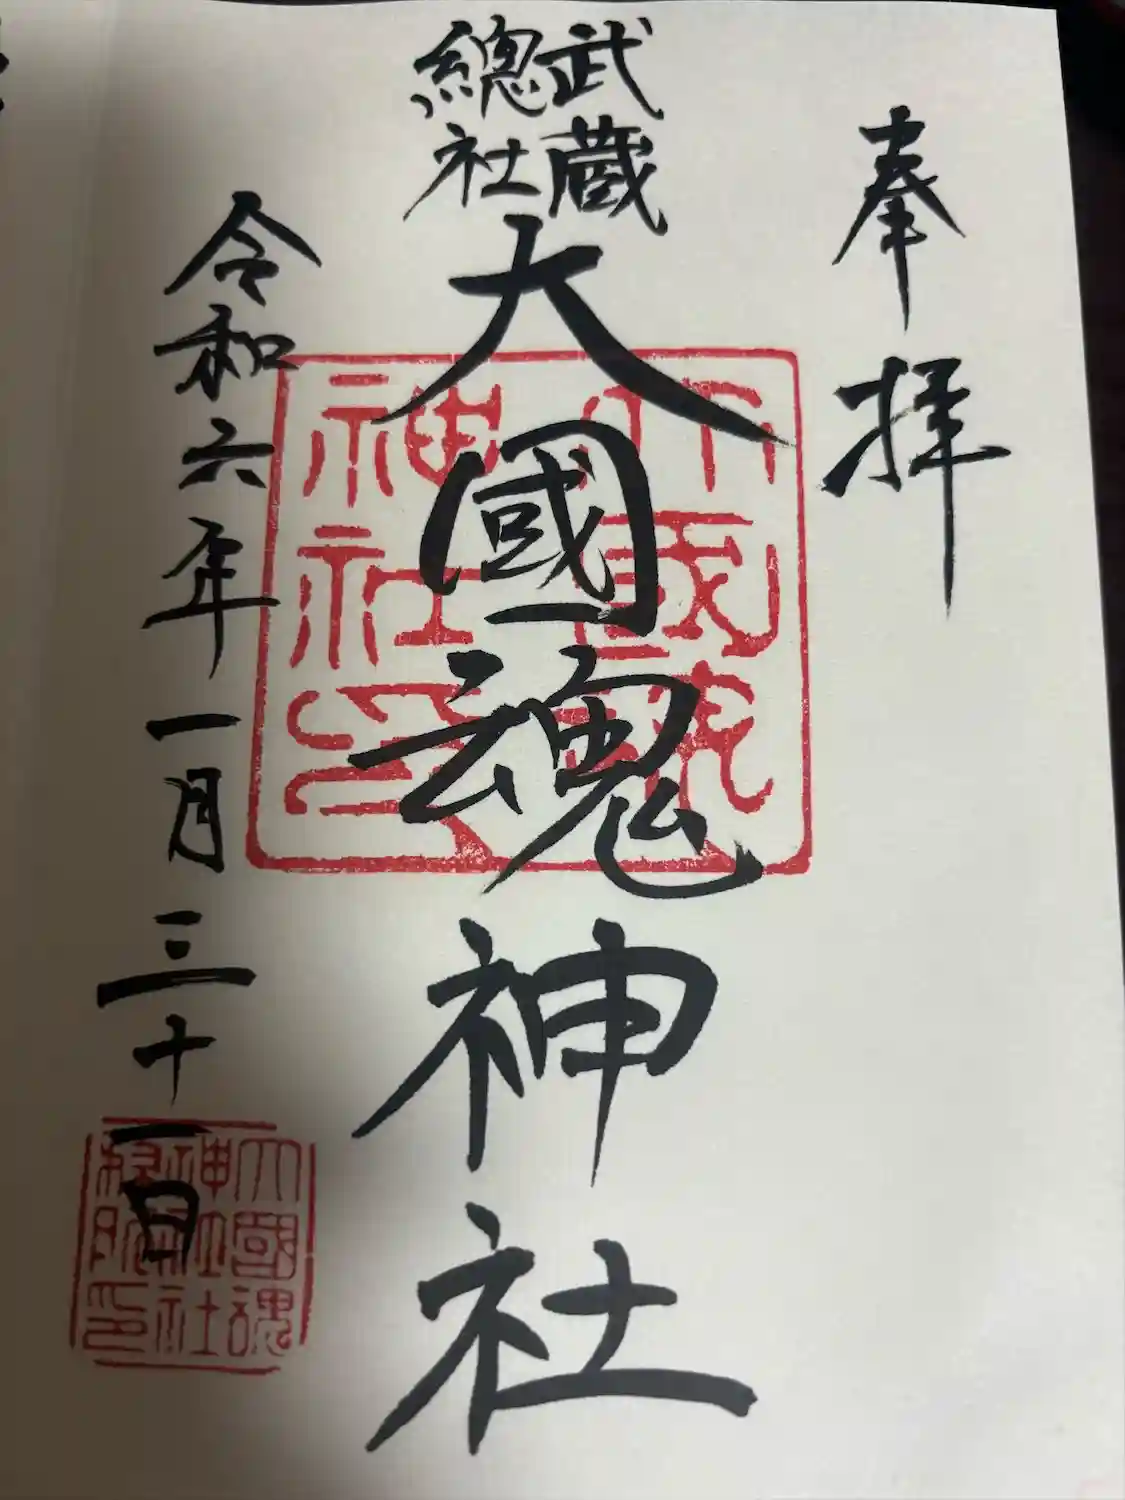 奉拝
武蔵
總社
大國魂神社
令和六年一月三十一日
大國魂
神社印
大國魂
神社社
務所印